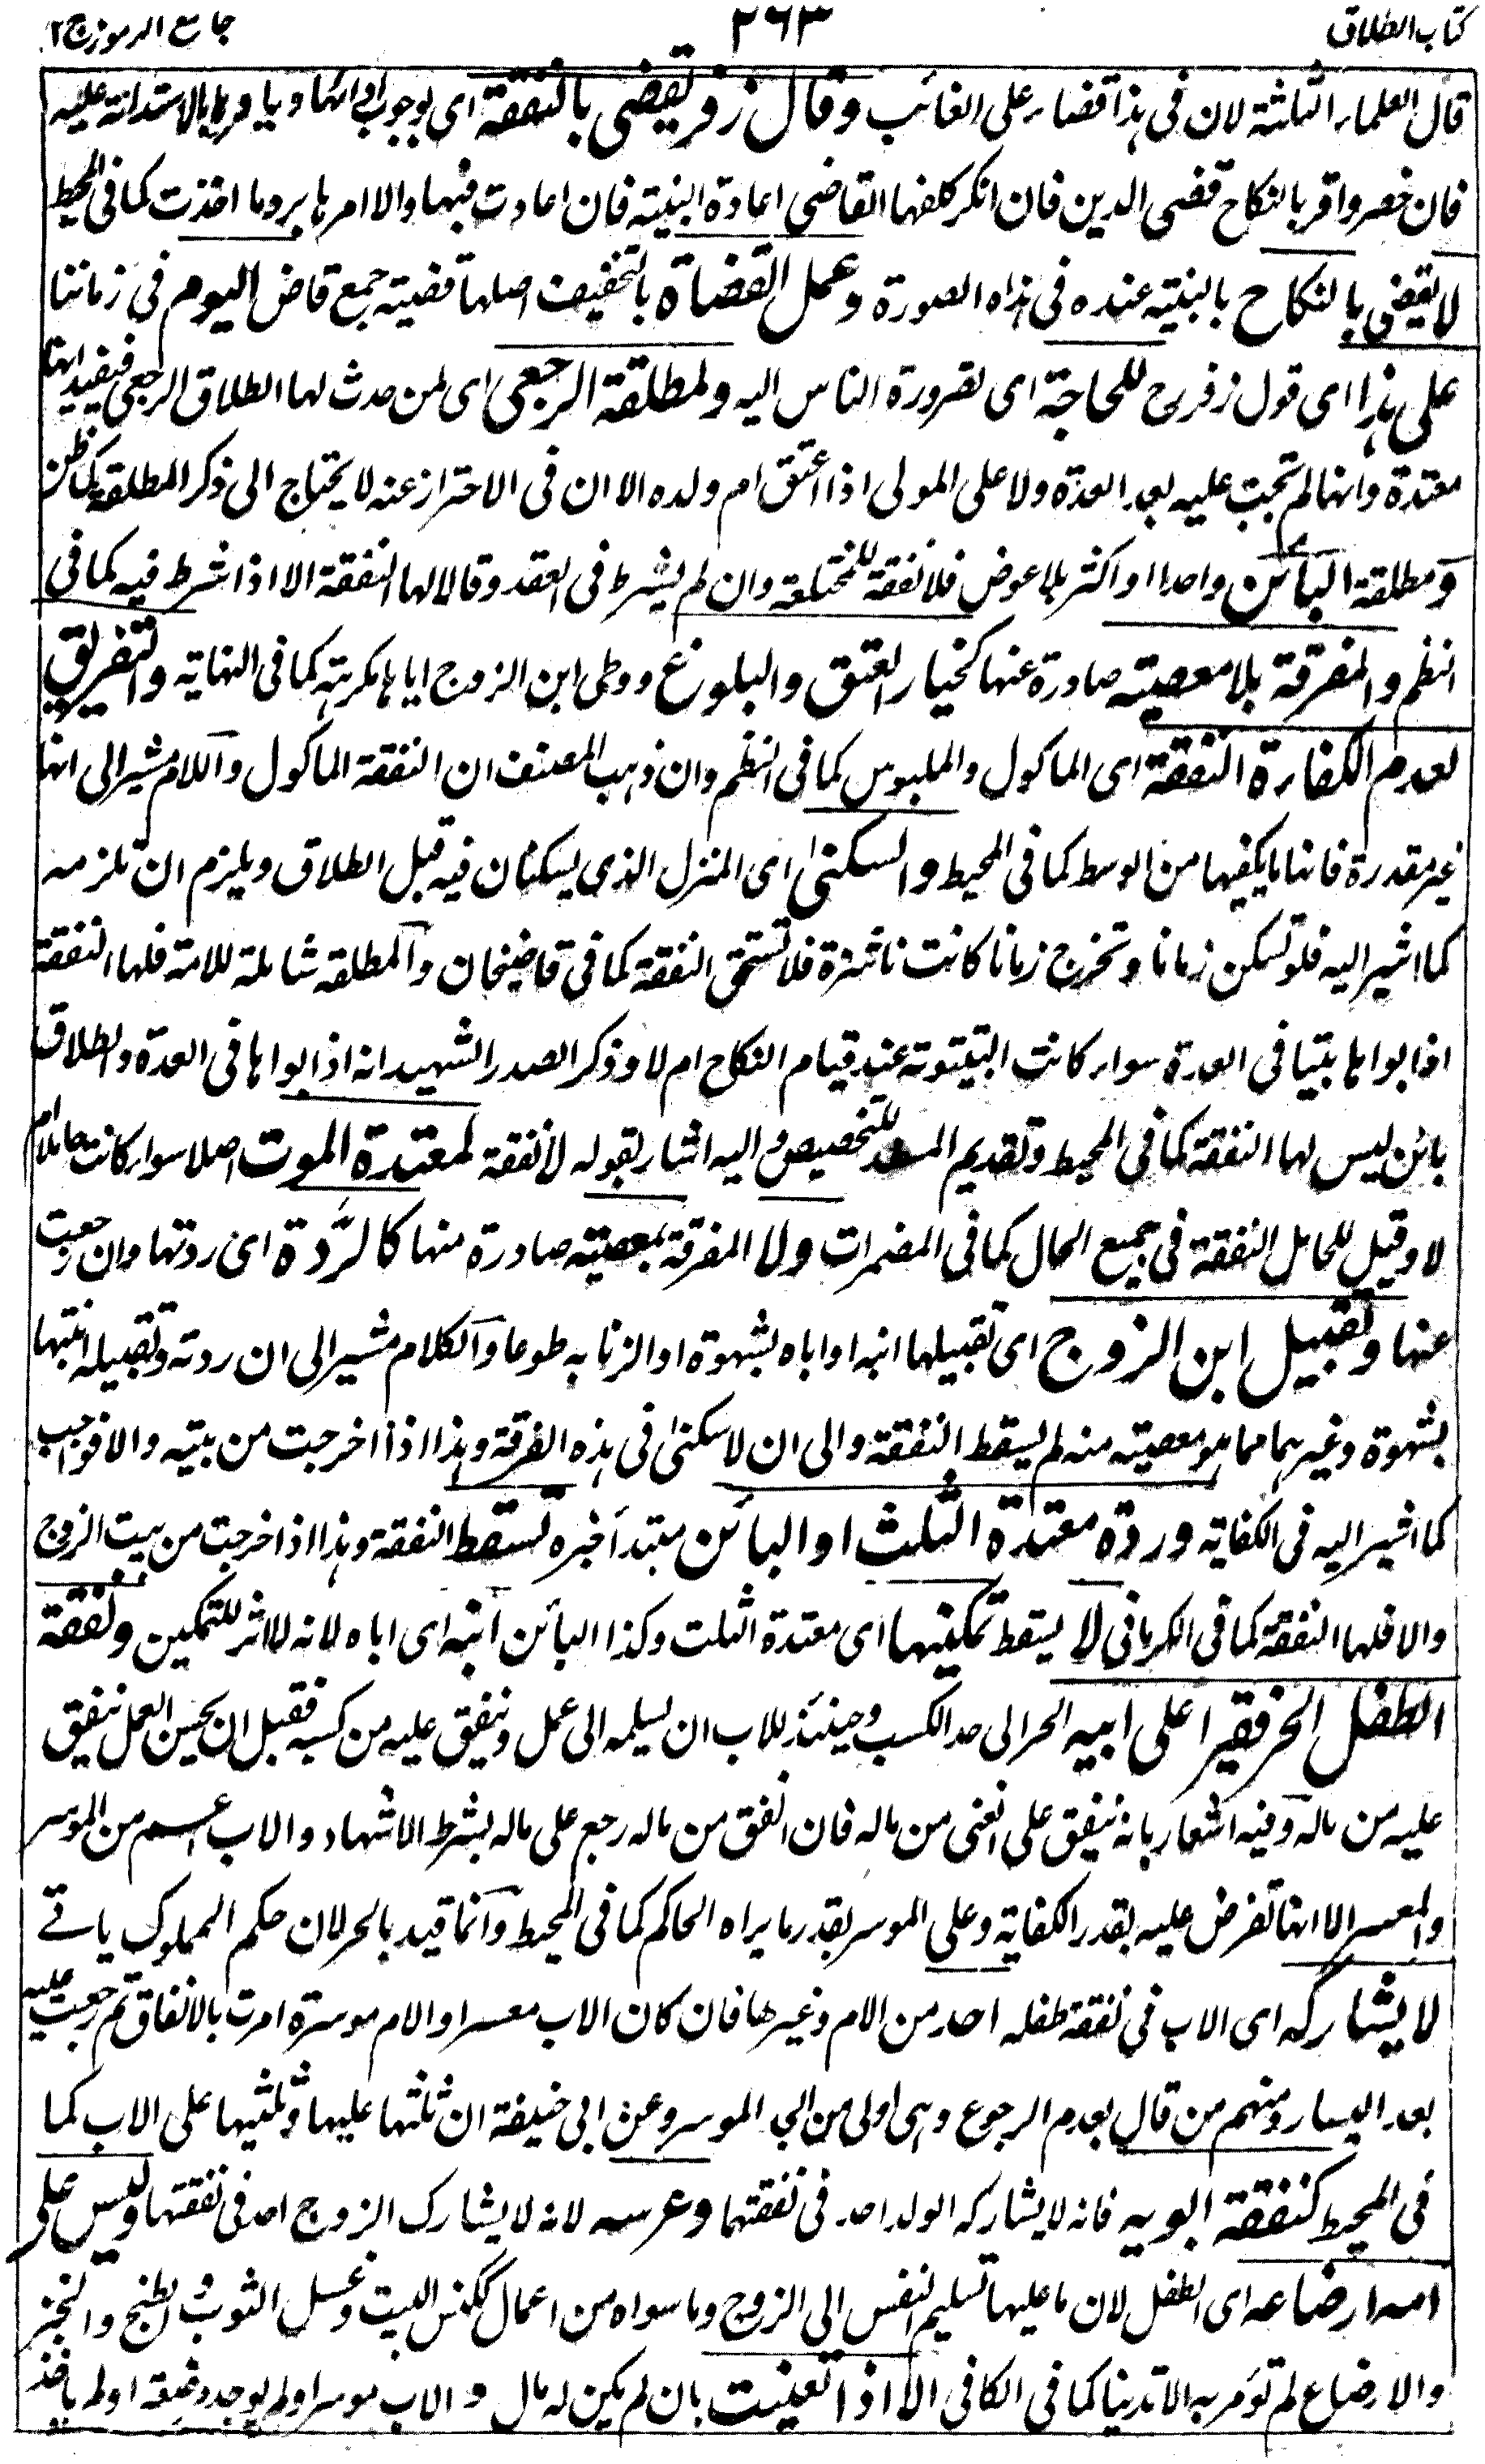 كتاب الطلاق
٢٦٣
جامع الرموز ج٢
قال العلماء الثلثة لان فى هذا قضاء على الغائب وقال زفر يقضى بالنفقة اى بوجوب ادائها ويامرها بالاستدانة عليه
فان حضر واقر بالنكاح قضى الدين فان انكر كلفها القاضى اعادة البينة فان اعادت فبها والا امرها برد ما اخذت كما فى المحيط
لا يقضى بالنكاح بالبينة عنده فى هذه الصورة وعمل القضاة بالتخفيف اصلها قضية جمع قاض اليوم فى زماننا
على هذا اى قول زفر رح للحاجة اى لضرورة الناس اليه ولمطلقة الرجعى اى لمن حدث لها الطلاق الرجعى فيفيد انها
معتدة وانها لم تجب عليه بعد العدة ولا على المولى اذا اعتق ام ولده الا ان فى الاحتراز عنه لا يحتاج الى ذكر المطلقة كما ظن
ومطلقة البائن واحدا او اكثر بلا عوض فلا نفقة للمختلعة وان لم يشرط فى العقد وقالا لها النفقة الا اذا شرط فيه كما فى
النظم والمفرقة بلا معصية صادرة عنها كخيار العتق والبلوغ ووطى ابن الزوج اياها مكرهة كما فى النهاية والتفريق
لعدم الكفارة النفقة اى الماكول والملبوس كما فى النظم وان ذهب المصنف ان النفقة الماكول واللام مشير الى انها
غير مقدرة فانها ما يكفيها من الوسط كما فى المحيط والسكنى اى المنزل الذى يسكنان فيه قبل الطلاق ويلزم ان تلزمه
كما اشير اليه فلو تسكن زمانا وتخرج زمانا كانت ناشزة فلا تستحق النفقة كما فى قاضيخان والمطلقه شاملة للامة فلها النفقة
اذا بواها بيتا فى العدة سواء كانت البيتوتة عند قيام النكاح ام لا وذكر الصدر الشهيد انه اذا بواها فى العدة والطلاق
بائن ليس لها النفقة كما فى المحيط وتقديم المسند للتخصيص واليه اشار بقوله لا نفقة لمعتدة الموت اصلا سواء كانت حاملا ام
لا وقيل للحامل النفقة فى جميع المال كما فى المضمرات ولا المفرقة بمعصية صادرة منها كالرّدة اى ردتها وان رجعت
عنها وتقبيل ابن الزوج اى تقبيلها ابنه او اباه بشهوة او الزنا به طوعا والكلام مشير الى ان ردته وتقبيله ابنتها
بشهوة وغيرهما مما هو معصية منه لم يسقط النفقة والى ان لا سكنى فى هذه الفرقة وهذا اذا اخرجت من بيته والا فواجب
كما اشير اليه فى الكفاية وردة معتدة الثلث او البائن مبتدأ خبره تسقط النفقة وهذا اذا خرجت من بيت الزوج
والا فلها النفقة كما فى الكرمانى لا يسقط تمكينها اى معتدة الثلث وكذا البائن ابنه اى اباه لانه لا اثر للتمكين ونفقة
الطفل الحر فقيرا على ابيه الحر الى حد الكسب وحينئذ للاب ان يسلمه الى عمل وينفق عليه من كسبه فقبل ان يحسن العمل ينفق
عليه من ماله وفيه اشعار بانه ينفق على الغنى من ماله فان انفق من ماله رجع على ماله بشرط الاشهاد والاب اعم من الموسر
والمعسر الا انها تفرض عليه بقدر الكفاية وعلى الموسر بقدر ما يراه الحاكم كما فى المحيط وانما قيد بالحر لان حكم المملوك ياتے
لا يشاركه اى الاب فى نفقة طفله احد من الام وغيرها فان كان الاب معسرا والام موسرة امرت بالانفاق ثم رجعت عليه
بعد اليسار ومنهم من قال بعدم الرجوع وهى اولى من الجد الموسر وعن ابى حنيفة ان ثلثها عليها وثلثيها على الاب كما
فى المحيط كنفقة ابويه فانه لا يشاركه الولد احد فى نفقتهما وعرسه لانه لا يشارك الزوج احد فى نفقتها وليس على
امه ارضاعه اى الطفل لان ما عليها تسليم النفس الى الزوج وما سواه من اعمال ككنس البيت وغسل الثوب والطبخ والخبز
والارضاع لم تؤمر به الا تدينا كما فى الكافى الا اذا تعينت بان لم يكن له مال و الاب موسر او لم يوجد مرضعة او لم ياخذ